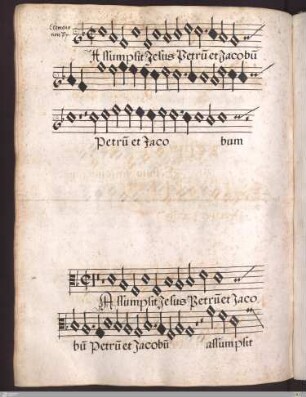 Assumpsit Jesus Petrū et Jacobū
Petrū et Jaco bum
Assumpsit Jesus Petrū et Jaco
bū Petrū et Jacobū assumpsit